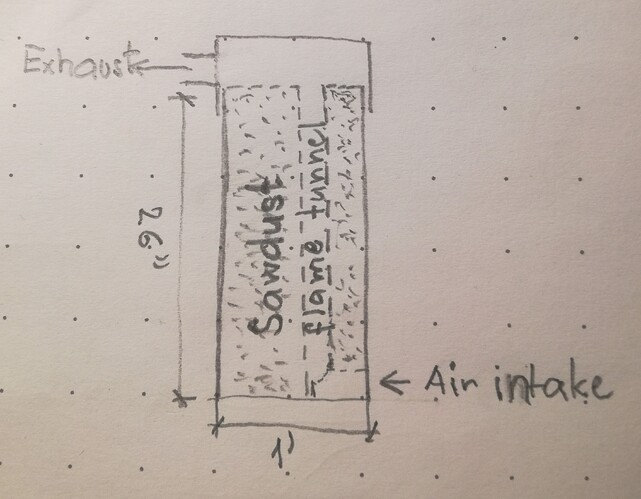 Exhaust
Sawdust
flame tunnel
26"
Air intake
1'